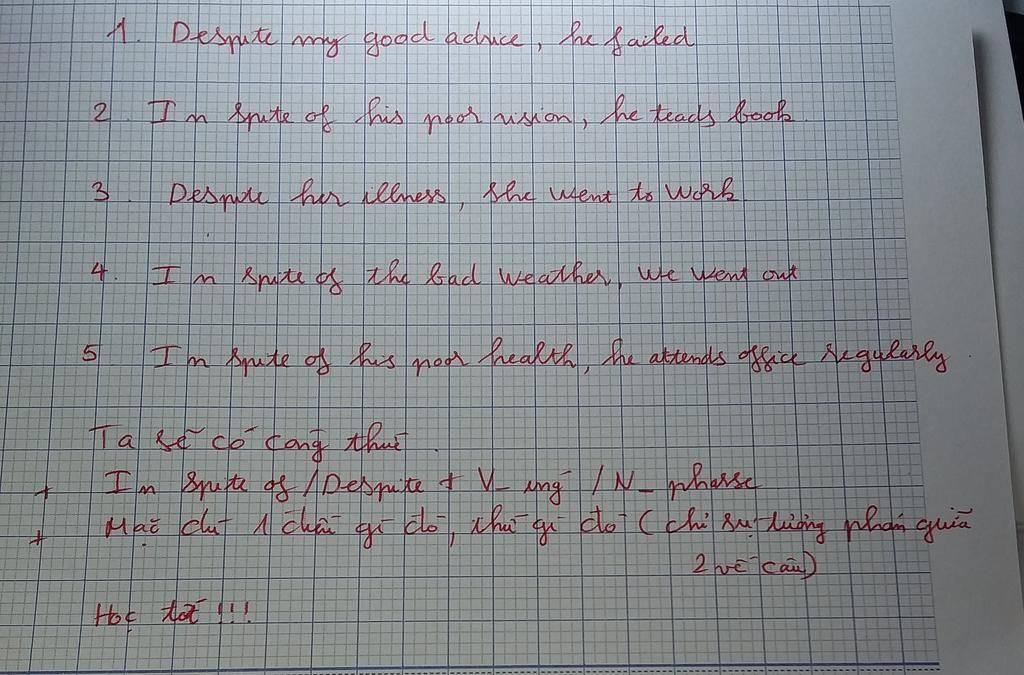 1. Despite my good advice, he failed
2. In spite of his poor vision, he reads book.
3. Despite her illness, she went to work
4. In spite of the bad weather, we went out
5 In spite of his poor health, he attends office regularly.
Ta sẽ có công thức.
+ In spite of / Despite + V_ing / N_pharse
+ Mặc dù 1 gì đó, thì gì đó (chỉ sự tương phản giữa
2 vế câu)
Học tốt !!!